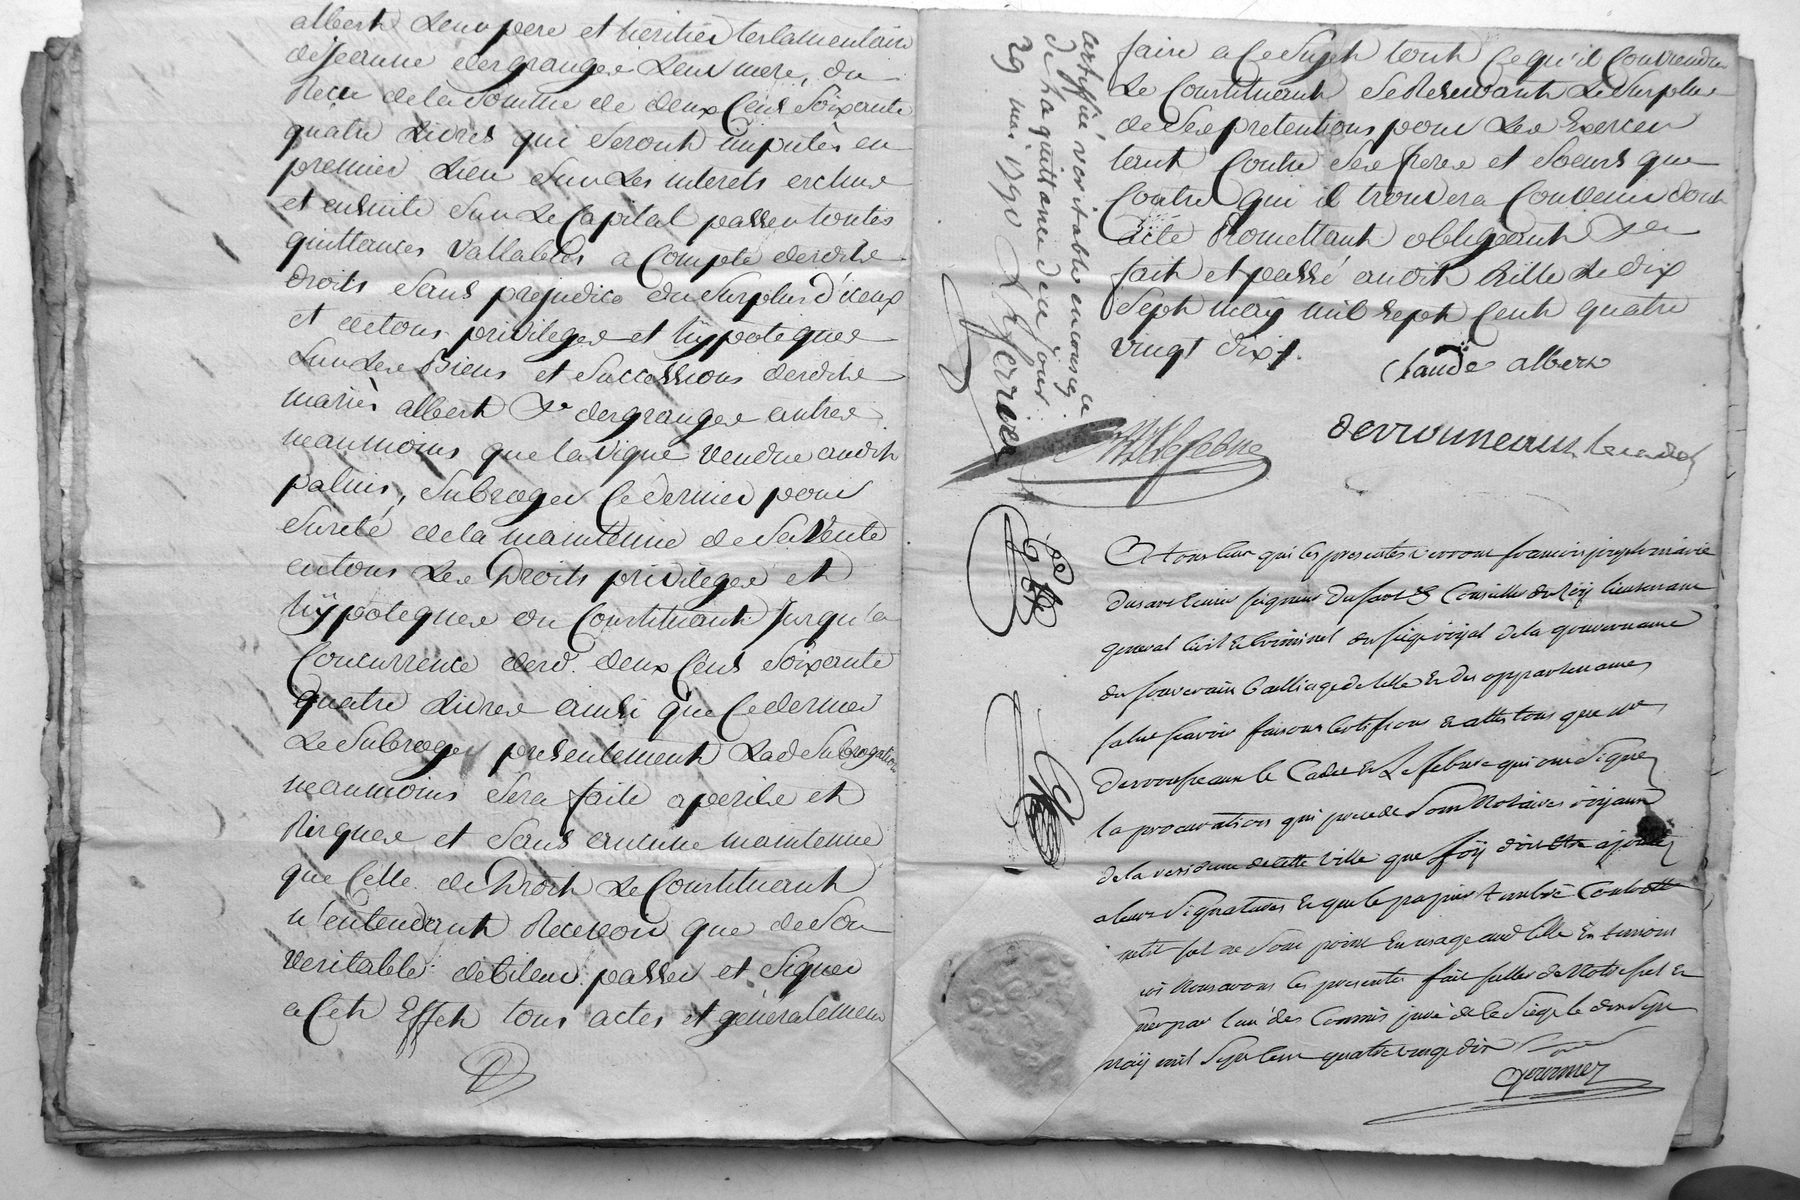 albert Leur pere et heritier testamentaire
de jeanne desgranges Leur mere, du
Recu de la Somme de deux Cens Soixante
quatre Livres qui Seront imputés en
premier Lieu Sur Les interets echus
et ensuite Sur Le Capital passer toutes
quittances Vallables a Compte desdits
droits Sans prejudice du Surplus d'iceux
et de tous privileges et hÿpoteques
Sur Les Biens et Successions desdits
mariés albert & desgranges autres
neanmoins que la Vigne Vendue audit
palnis, Subroger Ce dernier pour
Sureté de la maintenue de Sa Vente
en tous Les Droits privileges et
hÿpoteques du Constituant jusqu'a
Concurrence desd. deux Cens Soixante
quatre Livres ainsi que Ce dernier
Le Subroge presentement Lad Subrogation
neanmoins Sera faite a perils et
Risques et Sans aucune maintenue
que Celle de Droit Le Constituant
n'entendant Recevoir que de Son
Veritable debiteur passer et Signer
a Cet Effet tous actes et generalement
certiffié veritable en consequence
de la quittance de ce jour
29 mai 1790
faire a Ce Sujet tout Ce qu'il Conviendra
Le Constituant Se Reservant Le Surplus
de Ses pretentions pour Les Exercer
tant Contre Ses freres et Soeurs que
Contre qui il trouvera Convenir dont
acte Promettant obligeant &a
fait et passé audit Lille Le dix
Sept maÿ mil Sept Cent quatre
Vingt dix.
Claude albert
Lefebvre
A tous ceux qui ces presentes verront francois joseph marie
Dusart Ecuier Seigneur Du Sart & Conseiller du Roÿ Lieutenant
general Civil & Criminel du Siege roïal de la gouvernance
du Souverain bailliage de Lille & des appartenances
Salut Scavoir faisons Certifions & attestons que mes
Dervonneaux le Cadet & Lefebvre qui ont Signé
la procuration qui precede Sont Notaires roÿaux
de la residence de cette Ville que foÿ doit etre ajoutée
a leurs Signatures & que le papier timbré Controlle
petit Scel ne Sont point En usage aud Lille En temoin
de quoi Nous avons Ces presentes fait Seller de Notre Scel &
Signer par l'un des Commis juré de Ce Siege le dix Sept
maÿ mil Sept Cent quatre vingt dix